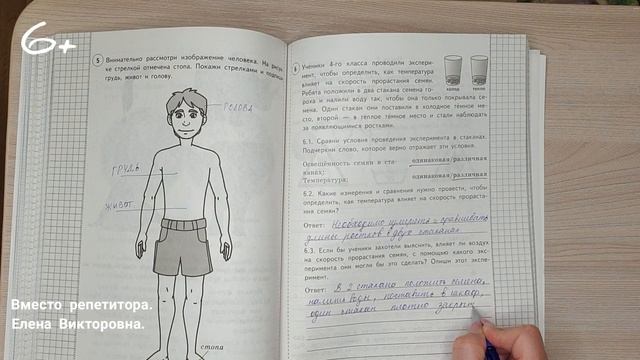 6+
5 Внимательно рассмотри изображение человека. На рисун-
ке стрелкой отмечена стопа. Покажи стрелками и подпиши
грудь, живот и голову.
ГОЛОВА
ГРУДЬ
ЖИВОТ
стопа
Вместо репетитора.
Елена Викторовна.
6 Ученики 4-го класса проводили экспери-
мент, чтобы определить, как температура
влияет на скорость прорастания семян.
Ребята положили в два стакана семена го-
роха и налили воду так, чтобы она только покрывала се-
мена. Один стакан они поставили в холодное тёмное ме-
сто, второй — в тёплое тёмное место и стали наблюдать
за появляющимися ростками.
холод
тепло
6.1. Сравни условия проведения эксперимента в стаканах.
Подчеркни слово, которое верно отражает эти условия.
Освещённость семян в ста-
канах: одинаковая/различная
Температура: одинаковая/различная
6.2. Какие измерения и сравнения нужно провести, чтобы
определить, как температура влияет на скорость прораста-
ния семян?
Ответ: Необходимо измерять и сравнивать
длины ростков в двух стаканах
6.3. Если бы ученики захотели выяснить, влияет ли воздух
на скорость прорастания семян, с помощью какого экс-
перимента они могли бы это сделать? Опиши этот экспе-
римент.
Ответ: В 2 стакана положить семена,
налить воды, поставить в шкаф,
один стакан плотно закрыт